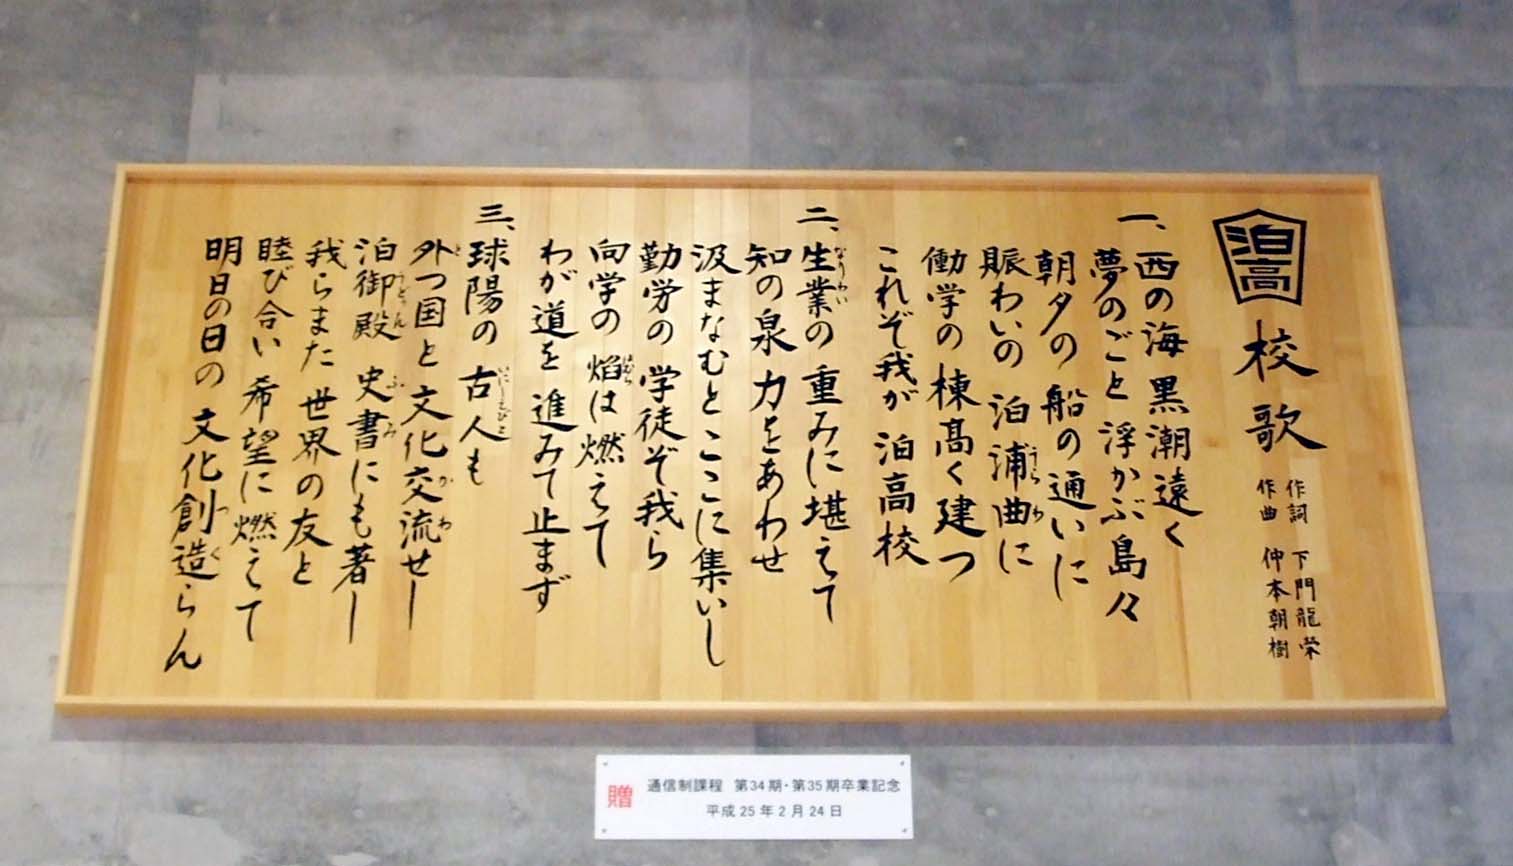 泊高
校歌
作詞 下門龍榮
作曲 仲本朝樹
一、西の海 黒潮遠く
夢のごと 浮かぶ島々
朝夕の 船の通いに
賑わいの 泊浦曲に
働学の 棟高く建つ
これぞ我が 泊高校
二、生業の 重みに堪えて
知の泉 力をあわせ
汲まなむと ここに集いし
勤労の 学徒ぞ我ら
向学の 焔は燃えて
わが道を 進みて止まず
三、球陽の 古人も
外つ国と 文化交流せし
泊御殿 史書にも著し
我らまた 世界の友と
睦び合い 希望に燃えて
明日の日の 文化創造らん
贈
通信制課程 第34期・第35期卒業記念
平成25年2月24日